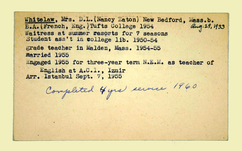 Whitelaw, Mrs. D.L.(Nancy Eaton) New Bedford, Mass.b.
B.A.(French, Eng.)Tufts College 1954 Aug. 29, 1933
Waitress at summer resorts for 7 seasons
Student ass't in college lib. 1950-54
grade teacher in Malden, Mass. 1954-55
Married 1955
Engaged 1955 for three-year term N.E.M. as teacher of
English at A.C.I., Izmir
Arr. Istanbul Sept. 7, 1955
Completed 4 yrs service 1960